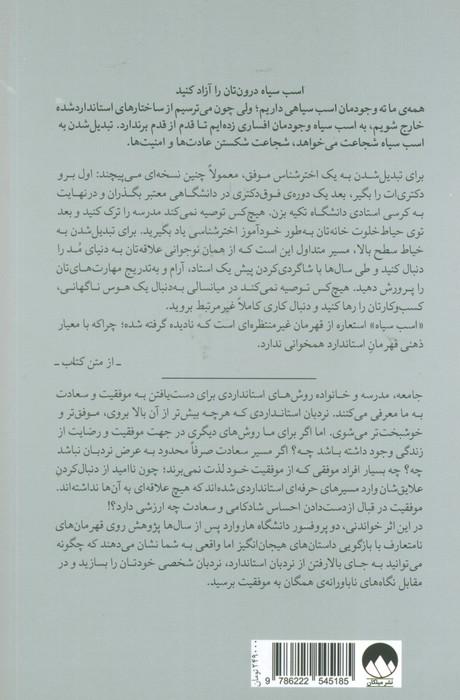 اسب سیاه درون‌تان را آزاد کنید
همه‌ی ما ته وجودمان اسب سیاهی داریم؛ ولی چون می‌ترسیم از ساختارهای استانداردشده
خارج شویم، به اسب سیاه وجودمان افساری زده‌ایم تا قدم از قدم برندارد. تبدیل‌شدن به
اسب سیاه شجاعت می‌خواهد، شجاعت شکستن عادت‌ها و امنیت‌ها.
برای تبدیل‌شدن به یک اخترشناس موفق، معمولاً چنین نسخه‌ای می‌پیچند: اول برو
دکتری‌ات را بگیر، بعد یک دوره‌ی فوق‌دکتری در دانشگاهی معتبر بگذران و در نهایت
به کرسی استادی دانشگاه تکیه بزن. هیچ‌کس توصیه نمی‌کند مدرسه را ترک کنید و بعد
توی حیاط‌خلوت خانه‌تان به‌طور خودآموز اخترشناسی یاد بگیرید. برای تبدیل‌شدن به یک
خیاط سطح بالا، مسیر متداول این است که از همان نوجوانی علاقه‌تان به دنیای مُد را
دنبال کنید و طی سال‌ها با شاگردی‌کردن پیش یک استاد، آرام و به‌تدریج مهارت‌های‌تان
را پرورش دهید. هیچ‌کس توصیه نمی‌کند در میانسالی به‌دنبال یک هوس ناگهانی،
کسب‌وکارتان را رها کنید و دنبال کاری کاملاً غیرمرتبط بروید.
«اسب سیاه» استعاره از قهرمان غیرمنتظره‌ای است که نادیده گرفته شده؛ چراکه با معیار
ذهنی قهرمانِ استاندارد همخوانی ندارد.
ـ از متن کتاب ـ
جامعه، مدرسه و خانواده روش‌های استانداردی برای دست‌یافتن به موفقیت و سعادت
به ما معرفی می‌کنند. نردبان استانداردی که هرچه بیش‌تر از آن بالا بروی، موفق‌تر و
خوشبخت‌تر می‌شوی. اما اگر برای ما روش‌های دیگری در جهت موفقیت و رضایت از
زندگی وجود داشته باشد چه؟ اگر مسیر سعادت صرفاً محدود به عرض نردبان نباشد
چه؟ چه بسیار افراد موفقی که از موفقیت خود لذت نمی‌برند؛ چون ناامید از دنبال‌کردنِ
علایق‌شان وارد مسیرهای حرفه‌ای استانداردی شده‌اند که هیچ علاقه‌ای به آن‌ها نداشته‌اند.
موفقیت در قبال از دست‌دادن احساس شادکامی و سعادت چه ارزشی دارد؟!
در این اثر خواندنی، دو پروفسور دانشگاه هاروارد پس از سال‌ها پژوهش روی قهرمان‌های
نامتعارف با بازگویی داستان‌های هیجان‌انگیز اما واقعی به شما نشان می‌دهند که چگونه
می‌توانید به جای بالارفتن از نردبان استاندارد، نردبان شخصی خودتان را بسازید و در
مقابل نگاه‌های ناباورانه‌ی همگان به موفقیت برسید.
۲۴۹۰۰۰ تومان
9 786222 545185
نشر میلکان